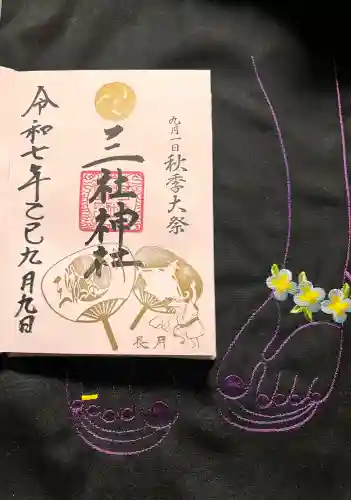 九月一日
秋季大祭
三社神社
令和七年乙巳九月九日
長月